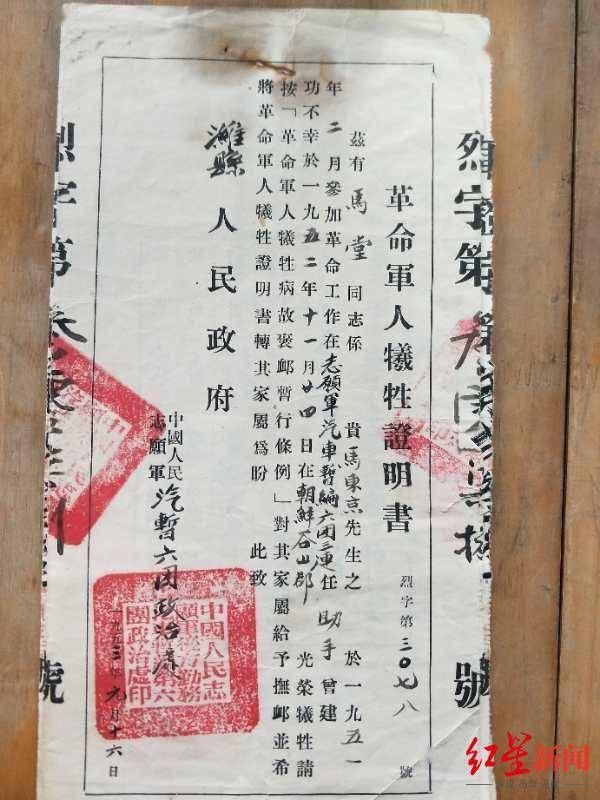 革命軍人犧牲證明書
烈字第三〇七八號
茲有馬堂同志係貴馬東京先生之於一九五一
年二月參加革命工作在志願軍汽車暫編六團二連任助手曾建
功不幸於一九五二年十一月廿四日在朝鮮谷山郡光榮犧牲請
按「革命軍人犧牲病故褒卹暫行條例」對其家屬給予撫卹並希
將革命軍人犧牲證明書轉其家屬爲盼此致
濰縣人民政府
中國人民
志願軍汽暫六團政治處
一九五三年九月十六日
中國人民志
團政治處印
烈字第
號
字第
號
红星新闻